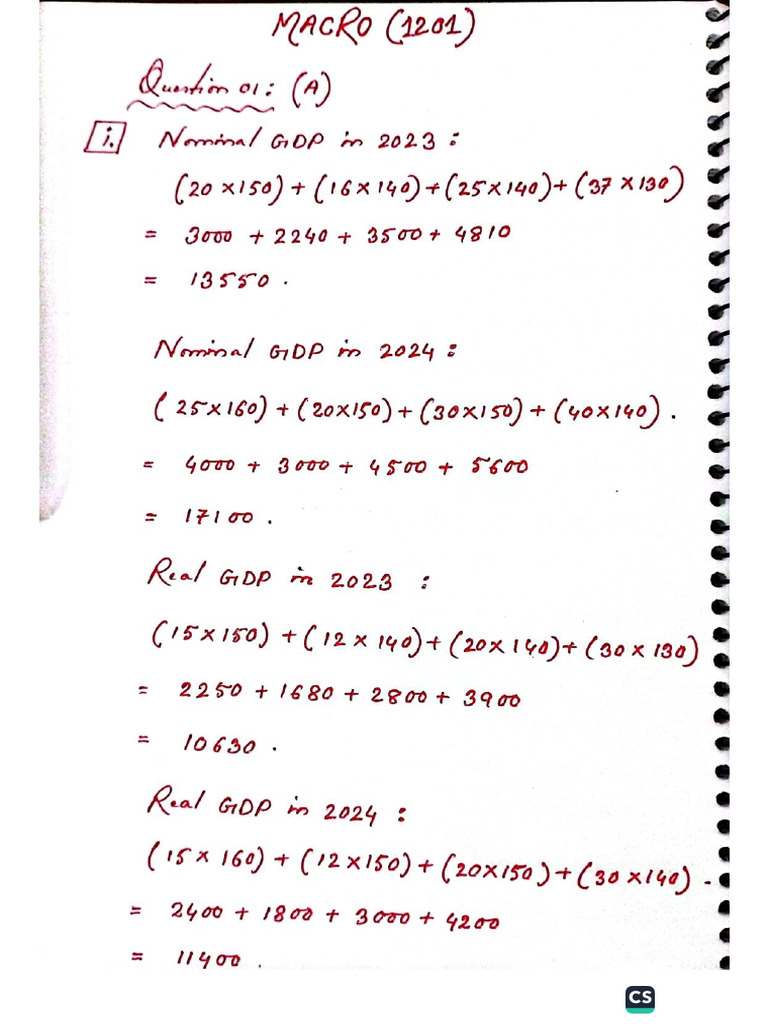 MACRO (1201)
Question 01: (A)
i. Nominal GDP in 2023:
(20 × 150) + (16 × 140) + (25 × 140) + (37 × 130)
= 3000 + 2240 + 3500 + 4810
= 13550.
Nominal GDP in 2024:
(25 × 160) + (20 × 150) + (30 × 150) + (40 × 140).
= 4000 + 3000 + 4500 + 5600
= 17100.
Real GDP in 2023 :
(15 × 150) + (12 × 140) + (20 × 140) + (30 × 130)
= 2250 + 1680 + 2800 + 3900
= 10630.
Real GDP in 2024 :
(15 × 160) + (12 × 150) + (20 × 150) + (30 × 140).
= 2400 + 1800 + 3000 + 4200
= 11400.
CS